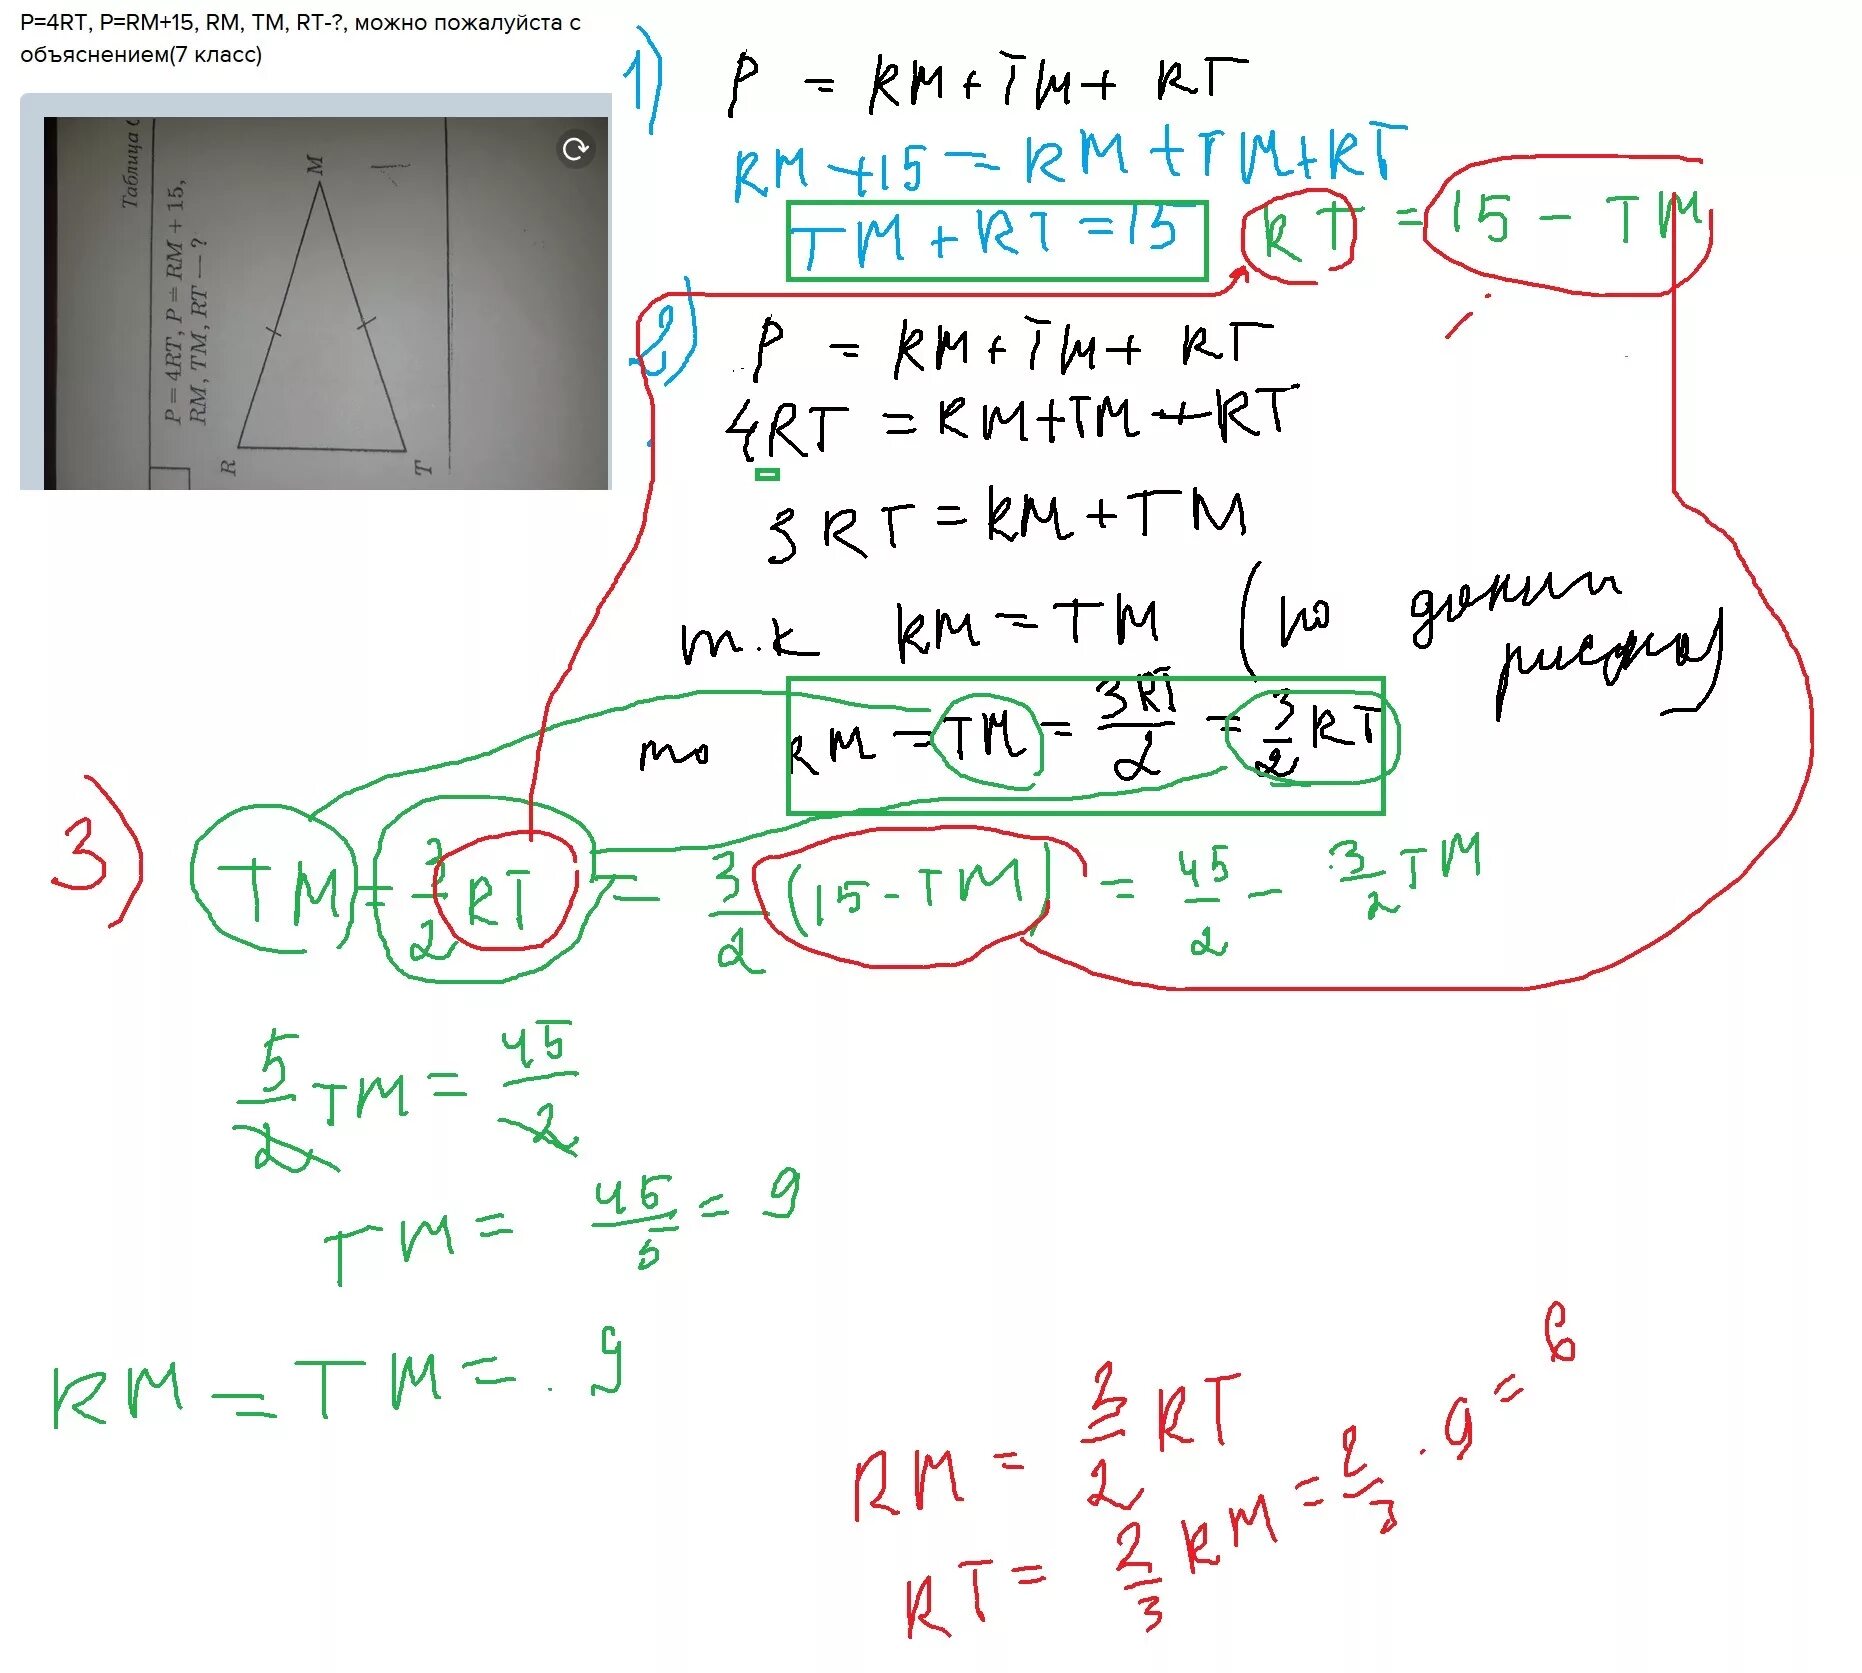 P=4RT, P=RM+15, RM, TM, RT-?, можно пожалуйста с
объяснением(7 класс)
Таблица
P = 4RT, P = RM + 15,
RM, TM, RT — ?
M
R
T
1) P = RM + TM + RT
RM + 15 = RM + TM + RT
TM + RT = 15
RT = 15 - TM
2) P = RM + TM + RT
4RT = RM + TM + RT
3RT = RM + TM
т.к RM = TM (по данным
рисунка)
то RM = TM = 3RT/2 = 3/2 RT
3) TM = 3/2 RT = 3/2 (15 - TM) = 45/2 - 3/2 TM
5/2 TM = 45/2
TM = 45/5 = 9
RM = TM = 9
RM = 3/2 RT
RT = 2/3 RM = 2/3 · 9 = 6